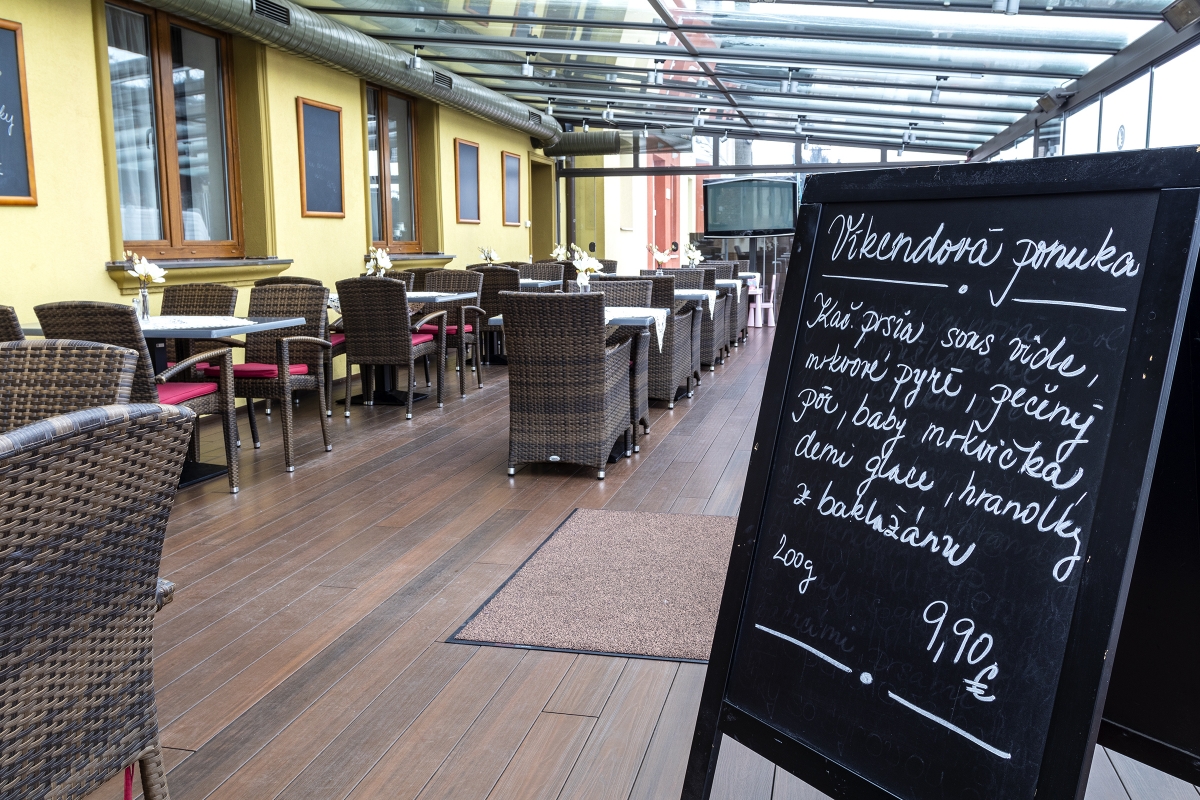 Víkendová ponuka
Kač. prsia sous vide,
mrkvové pyré, pečený
pór, baby mrkvička,
demi glace, hranolky
z baklažánu
200g
9,90
€